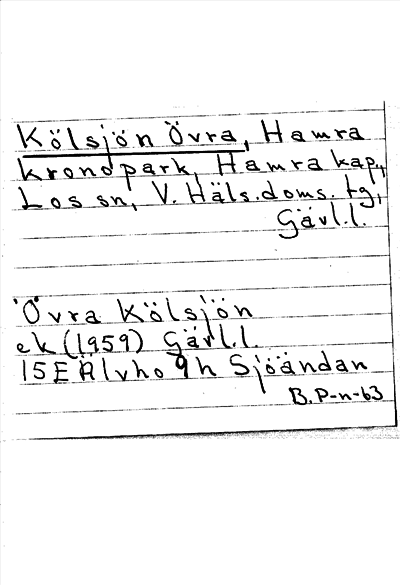 Kölsjön Övra, Hamra
kronopark, Hamra kap.,
Los sn, V. Häls. doms. tg,
Gävl.l.
Övra Kölsjön
ek (1959) Gävl.l.
15E Älvho 9h Sjöändan
B. P-n-63